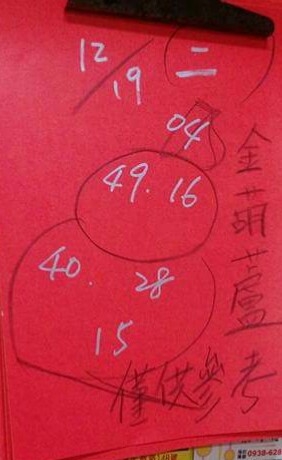 12/19
二
04
49. 16
40. 28
15
金葫蘆
僅供參考
0938-620